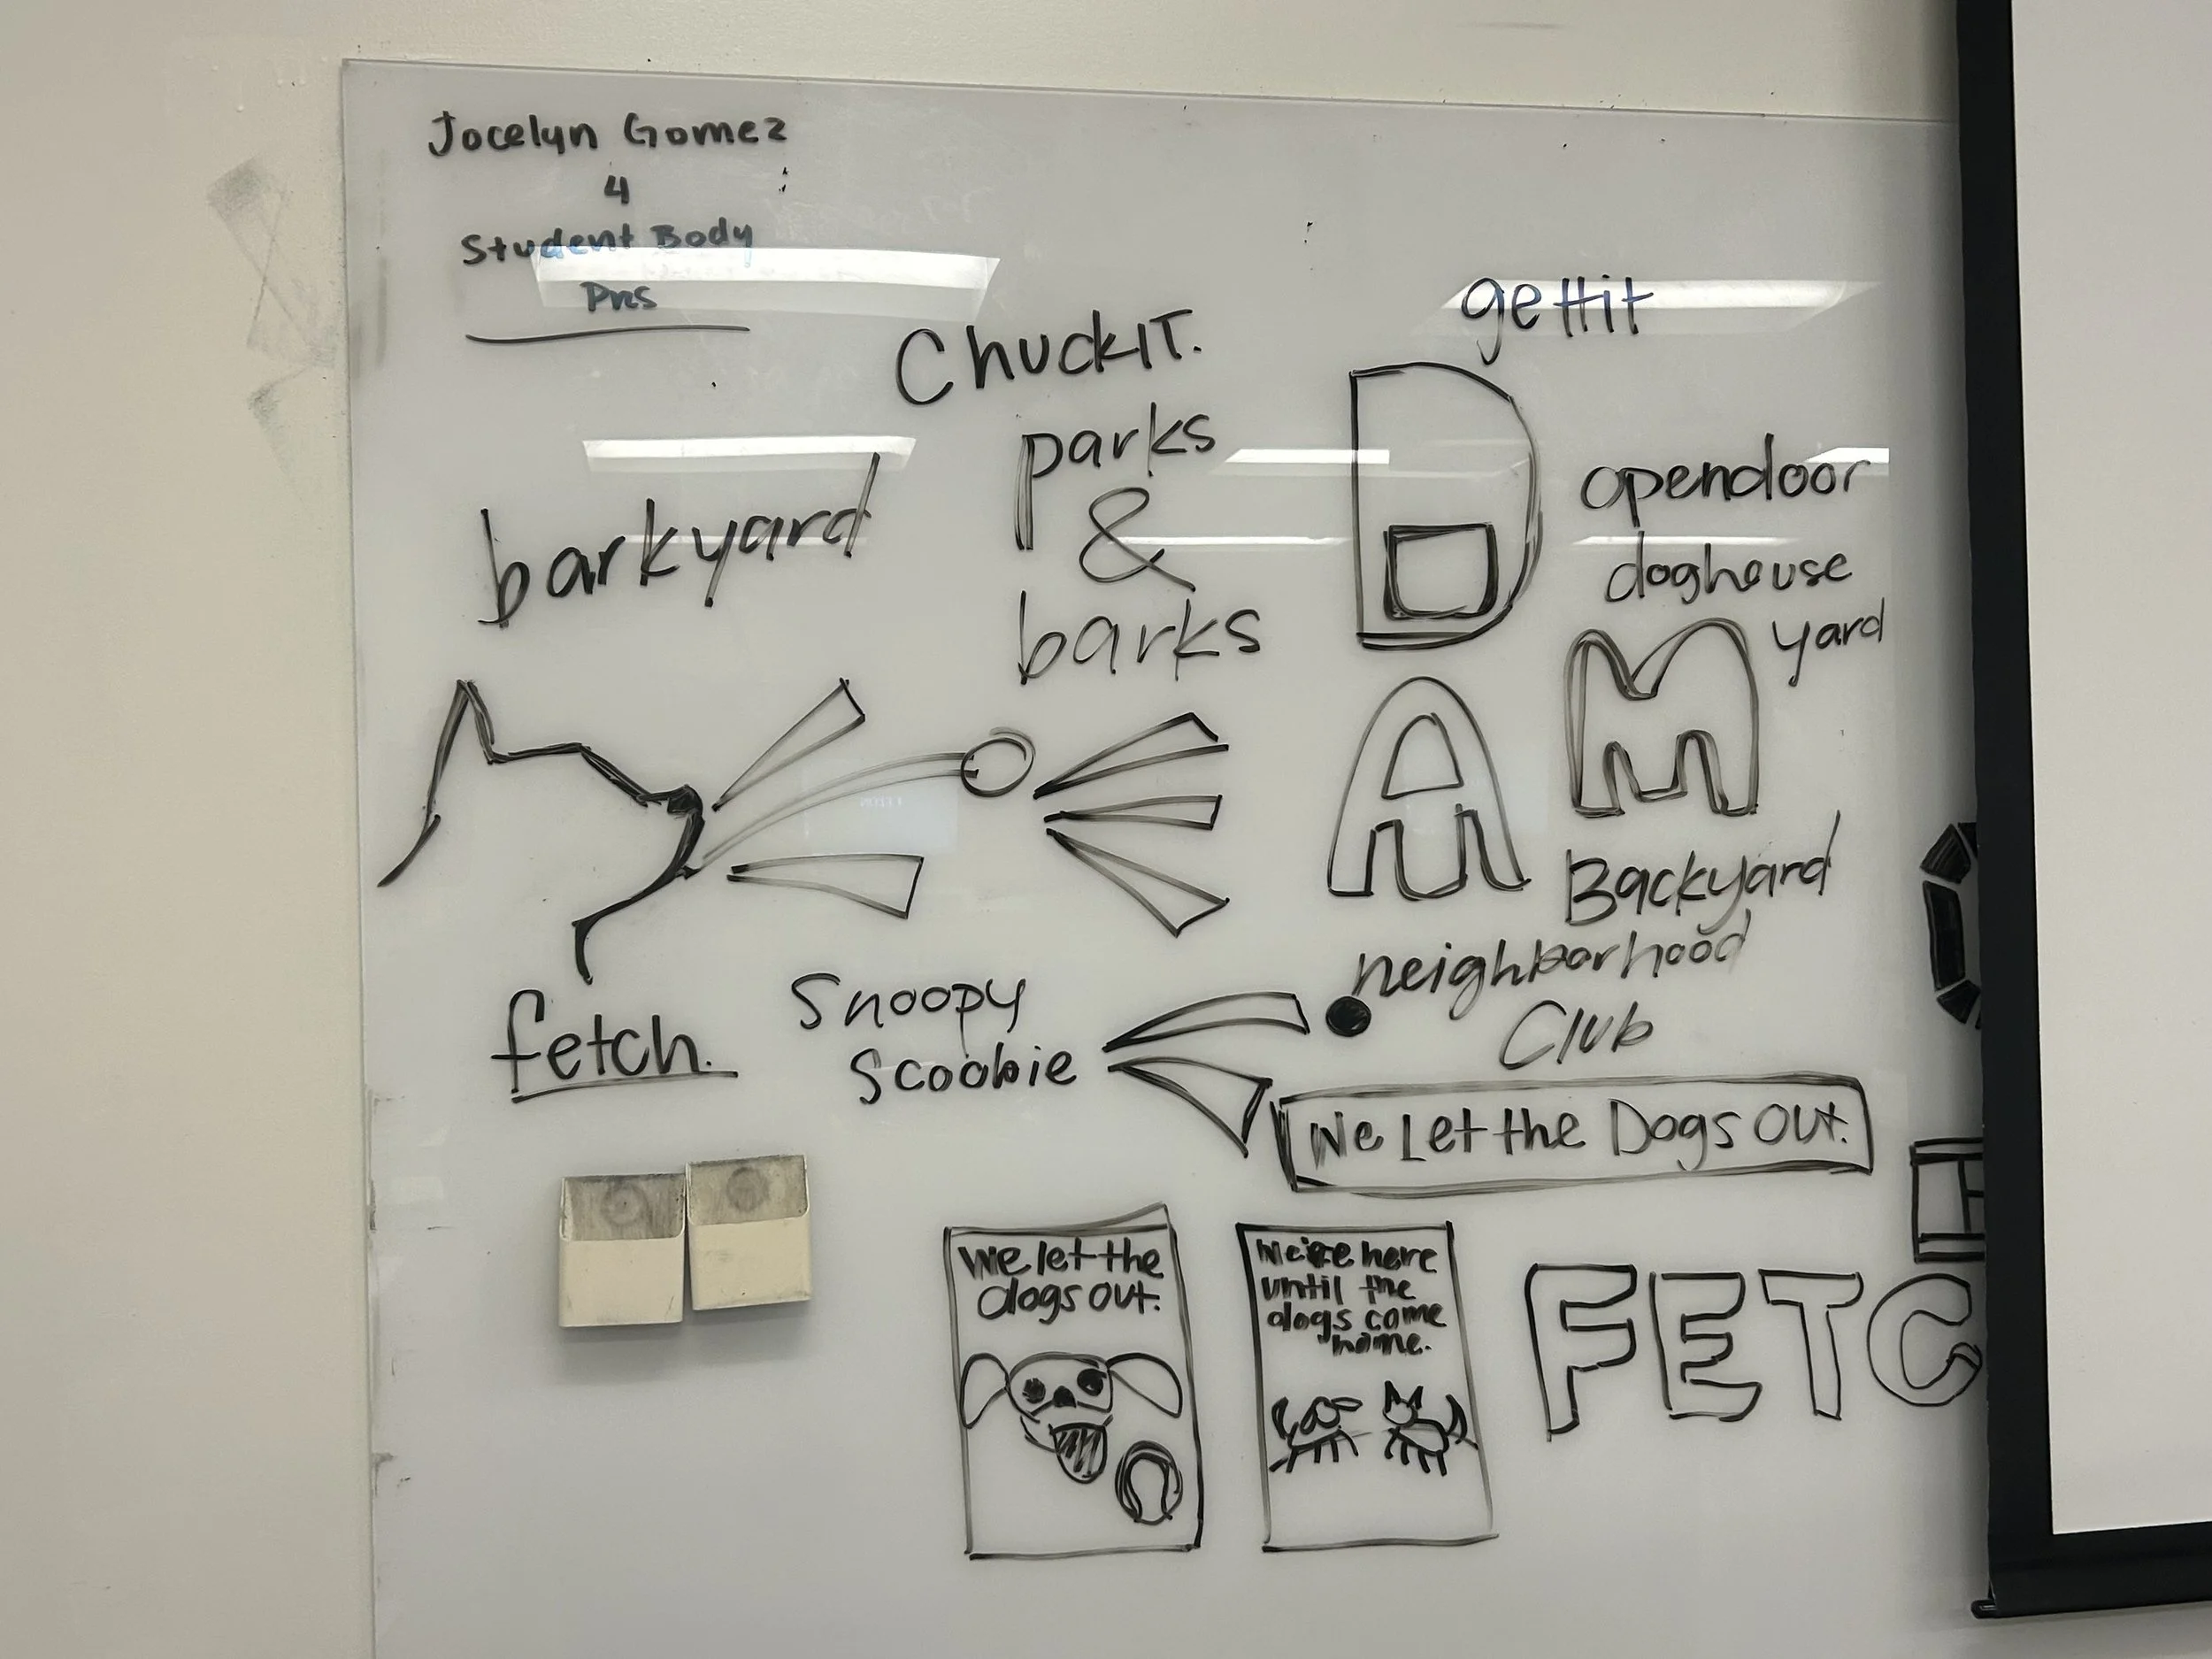 Jocelyn Gomez
4
Student Body
Pres
gettit
ChuckIT.
parks
&
barks
barkyard
D
opendoor
doghouse
yard
A
M
Backyard
neighborhood
Club
fetch.
Snoopy
Scoobie
We Let the Dogs Out.
We let the
dogs out.
We're here
until the
dogs come
home.
FETC